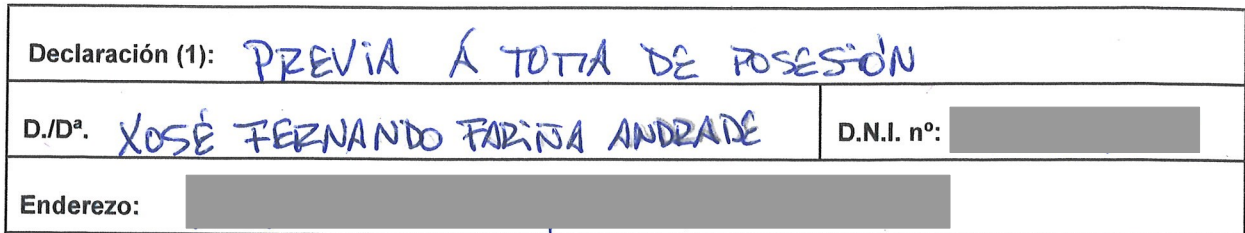 Declaración (1): PREVIA Á TOMA DE POSESIÓN
D./Dª. XOSÉ FERNANDO FARIÑA ANDRADE D.N.I. nº:
Enderezo: